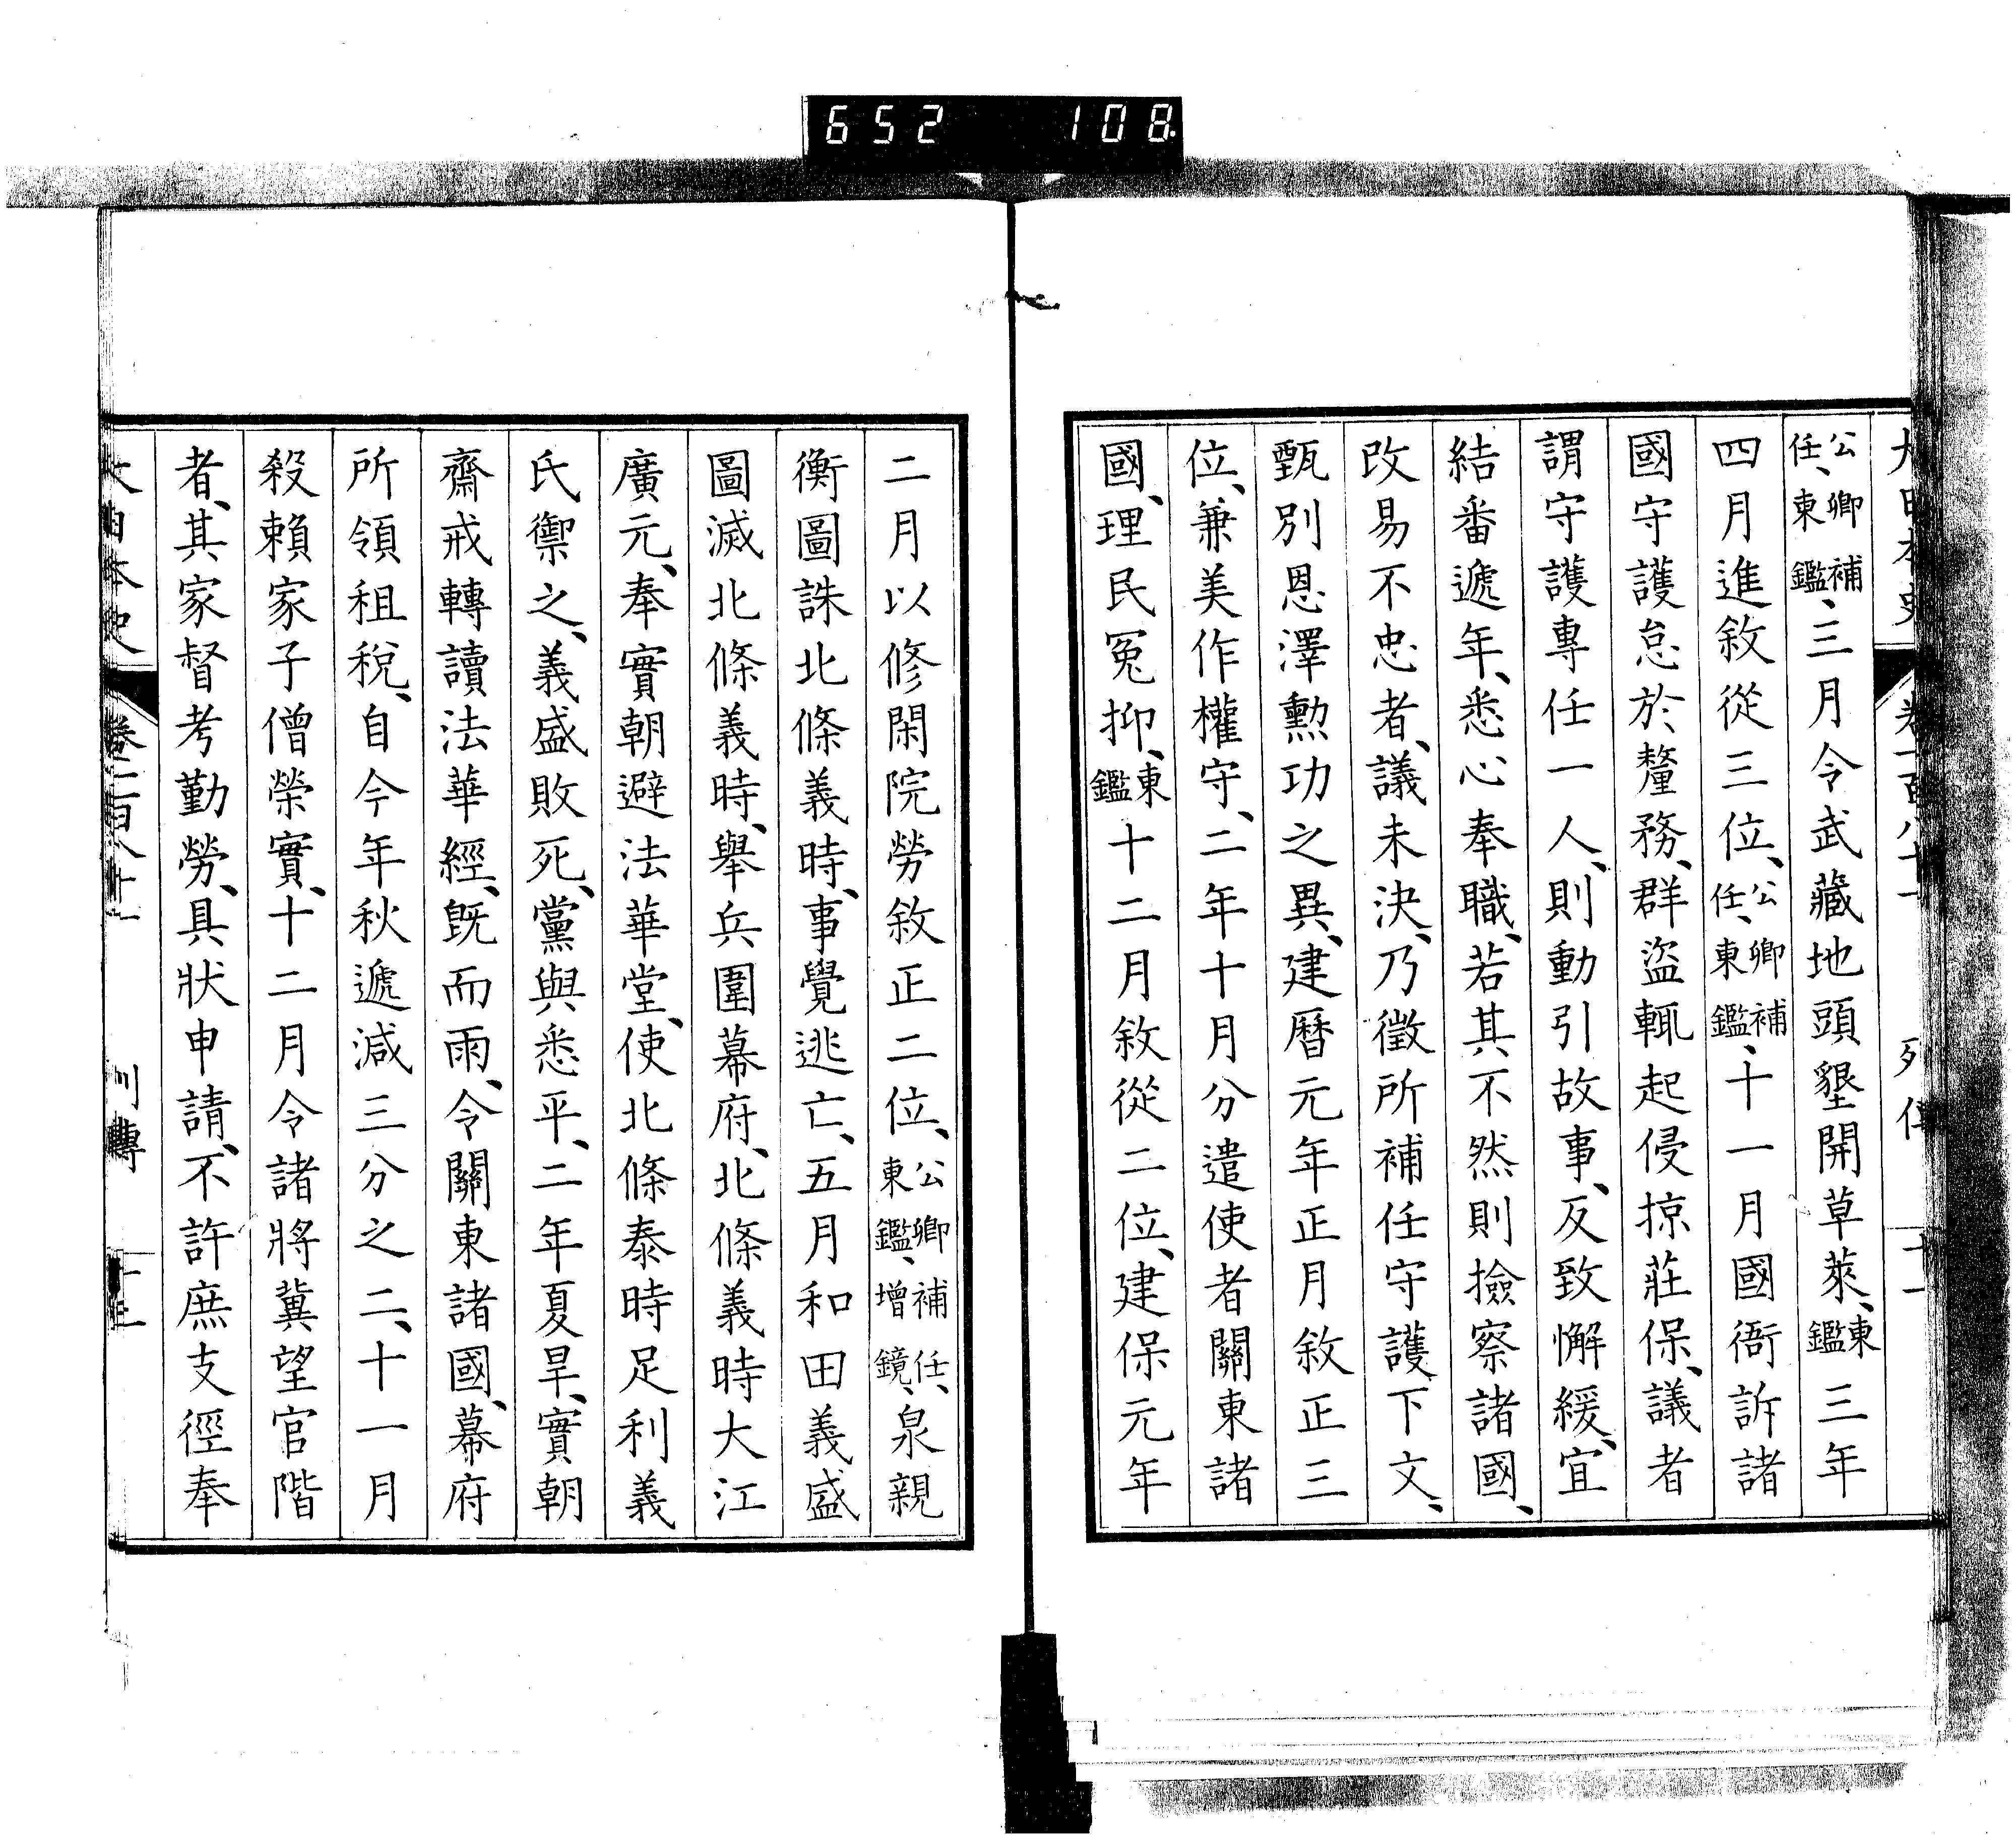 652 108
大日本史 卷一百八十一 列傳 十一
公卿補任、東鑑、三月令武藏地頭墾開草萊、東鑑三年
四月進敘從三位、公卿補任、東鑑、十一月國衙訴諸
國守護怠於釐務、群盜輒起侵掠莊保、議者
謂守護專任一人、則動引故事、反致懈緩、宜
結番遞年、悉心奉職、若其不然則撿察諸國、
改易不忠者、議未決、乃徵所補任守護下文、
甄別恩澤勲功之異、建曆元年正月敘正三
位、兼美作權守、二年十月分遣使者關東諸
國、理民冤抑、東鑑十二月敘從二位、建保元年
二月以修閑院勞敘正二位、公卿補任、東鑑、增鏡、泉親
衡圖誅北條義時、事覺逃亡、五月和田義盛
圖滅北條義時、舉兵圍幕府、北條義時大江
廣元、奉實朝避法華堂、使北條泰時足利義
氏禦之、義盛敗死、黨與悉平、二年夏旱、實朝
齋戒轉讀法華經、既而雨、令關東諸國、幕府
所領租稅、自今年秋遞減三分之二、十一月
殺賴家子僧榮實、十二月令諸將冀望官階
者、其家督考勤勞、具狀申請、不許庶支徑奉
大日本史 卷一百八十一 列傳 十二